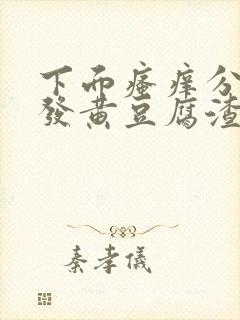 下面瘙癢分
發黄豆腐渣
秦孝儀